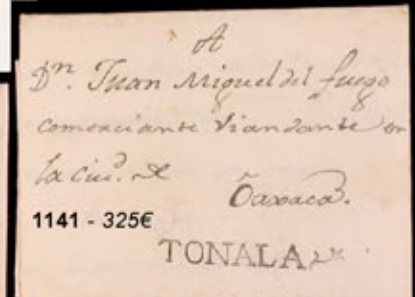 A
Dn. Juan Miguel del fuego
comerciante Viandante en
la ciud. de
Oaxaca.
1141 - 325€
TONALA